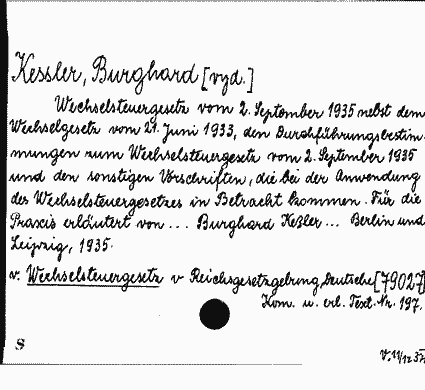 Kessler, Burghard [vyd.]
Wechselsteuergesetz vom 2. September 1935 nebst dem
Wechselgesetz vom 21. Juni 1933, den Durchführungsbestim-
mungen zum Wechselsteuergesetz vom 2. September 1935
und den sonstigen Vorschriften, die bei der Anwendung
des Wechselsteuergesetzes in Betracht kommen. Für die
Praxis erläutert von ... Burghard Keßler ... Berlin und
Leipzig, 1935.
v. Wechselsteuergesetz v Reichsgesetzgebung, Deutsche [79027]
Kom. u. erl. Text. Nr. 197.
S